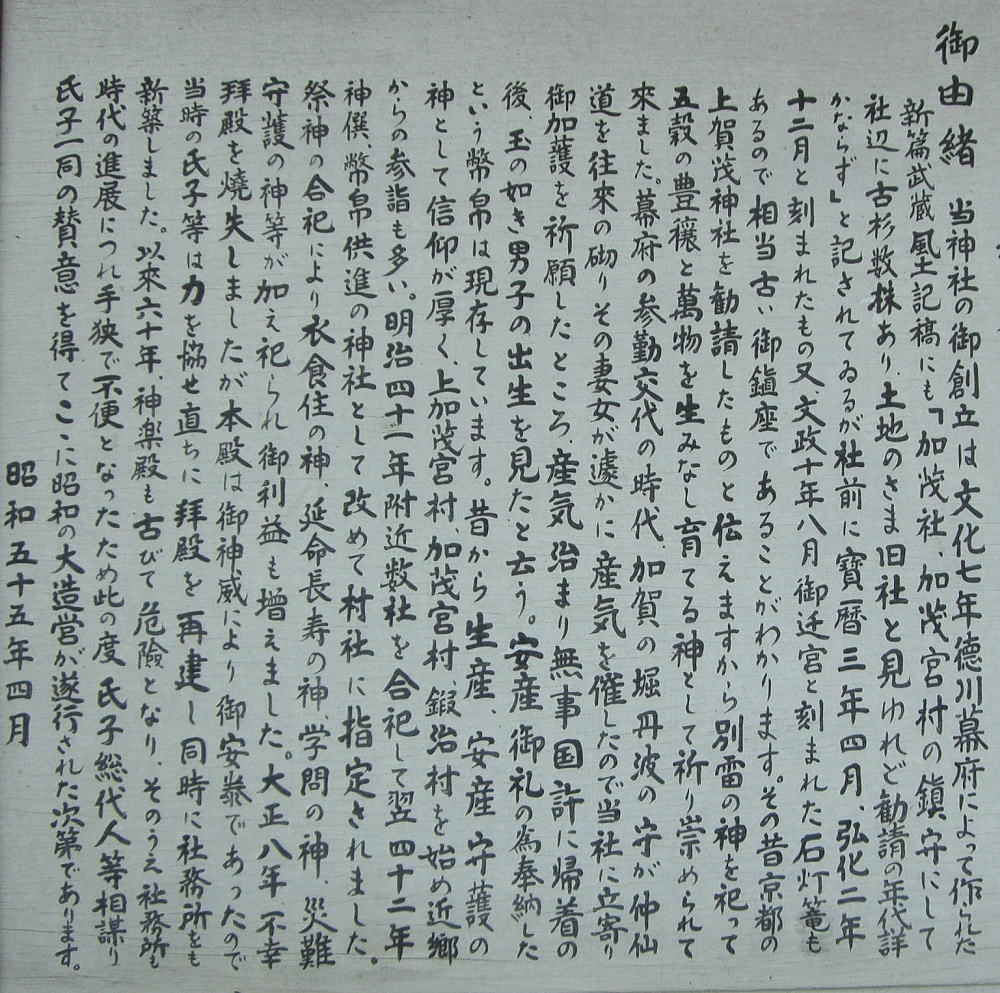 御由緒 当神社の御創立は文化七年德川幕府によって作られた
新篇武蔵風土記稿にも「加茂社、加茂宮村の鎮守にして
社辺に古杉数株あり、土地のさま旧社と見ゆれど勧請の年代詳
かならず」と記されてゐるが社前に寶暦三年四月、弘化二年
十二月と刻まれたもの又、文政十年八月御迁宮と刻まれた石灯篭も
あるので相当古い御鎮座であることがわかります。その昔京都の
上賀茂神社を勧請したものと伝えますから別雷の神を祀って
五穀の豊穣と萬物を生みなし育てる神として祈り崇められて
來ました。幕府の参勤交代の時代、加賀の堀丹波の守が仲仙
道を往來の砌りその妻女が遽かに産気を催したので当社に立寄り
御加護を祈願したところ、産気治まり無事国許に帰着の
後、玉の如き男子の出生を見たと云う。安産御礼の為奉納した
という幣帛は現存しています。昔から生産、安産守護の
神として信仰が厚く、上加茂宮村、加茂宮村、鍛治村を始め近郷
からの参詣も多い。明治四十一年附近数社を合祀して翌四十二年
神饌、幣帛供進の神社として改めて村社に指定されました。
祭神の合祀により衣食住の神、延命長寿の神、学問の神、災難
守護の神等が加え祀られ御利益も増えました。大正八年不幸
拜殿を燒失しましたが本殿は御神威により御安泰であったので
当時の氏子等は力を協せ直ちに拜殿を再建し同時に社務所をも
新築しました。以來六十年、神楽殿も古びて危險となり、そのうえ社務所も
時代の進展につれ手狭で不便となったため此の度氏子総代人等相謀り
氏子一同の賛意を得てここに昭和の大造営が遂行された次第であります。
昭和五十五年四月